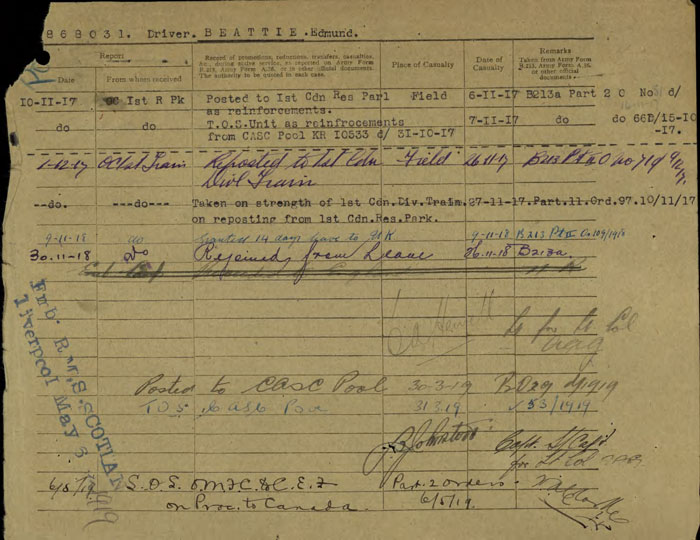 868031. Driver. BEATTIE. Edmund.
Report
Record of promotions, reductions, transfers, casualties, &c., during active service, as reported on Army Form B.213, Army Form A.36, or in other official documents. The authority to be quoted in each case.
Place of Casualty
Date of Casualty
Remarks
Taken from Army Form B.213, Army Form A.36, or other official documents.
Date
From whom received
10-11-17 OC 1st R Pk Posted to 1st Cdn Res Park Field 6-11-17 B213a Part 2 O No d/
as reinforcements.
do do T.O.S.Unit as reinfrocements 7-11-17 do do 66D/15-10
from CASC Pool KR 10533 d/ 31-10-17 -17.
1-12-17 OC 1st Train Reposted to 1st Cdn Field 26/11/17 B213 Pt 2 O
Divl Train
--do. ---do--- Taken on strength of 1st Cdn.Div.Train. 27-11-17. Part.11.Ord.97. 10/11/17
on reposting from 1st Cdn.Res.Park.
9-11-18 do Granted 14 days leave to U.K 9-11-18 B213 Pt II O.
30-11-18 do Rejoined from Leave 26-11-18 B213a
for Lt Col
AAG
Posted to CASC Pool 30-3-19 BO29 d/1919
TOS CASC Pool 31 3 19 53/1919
Johnstone Capt. S/Capt
for Lt Col
Emb. R.M.S. SCOTIAN
Liverpool May 6 1919
6/5/19 S.O.S. O.M.F.C. & C.E.F Part 2 orders
on Proc. to Canada. 6/5/19.